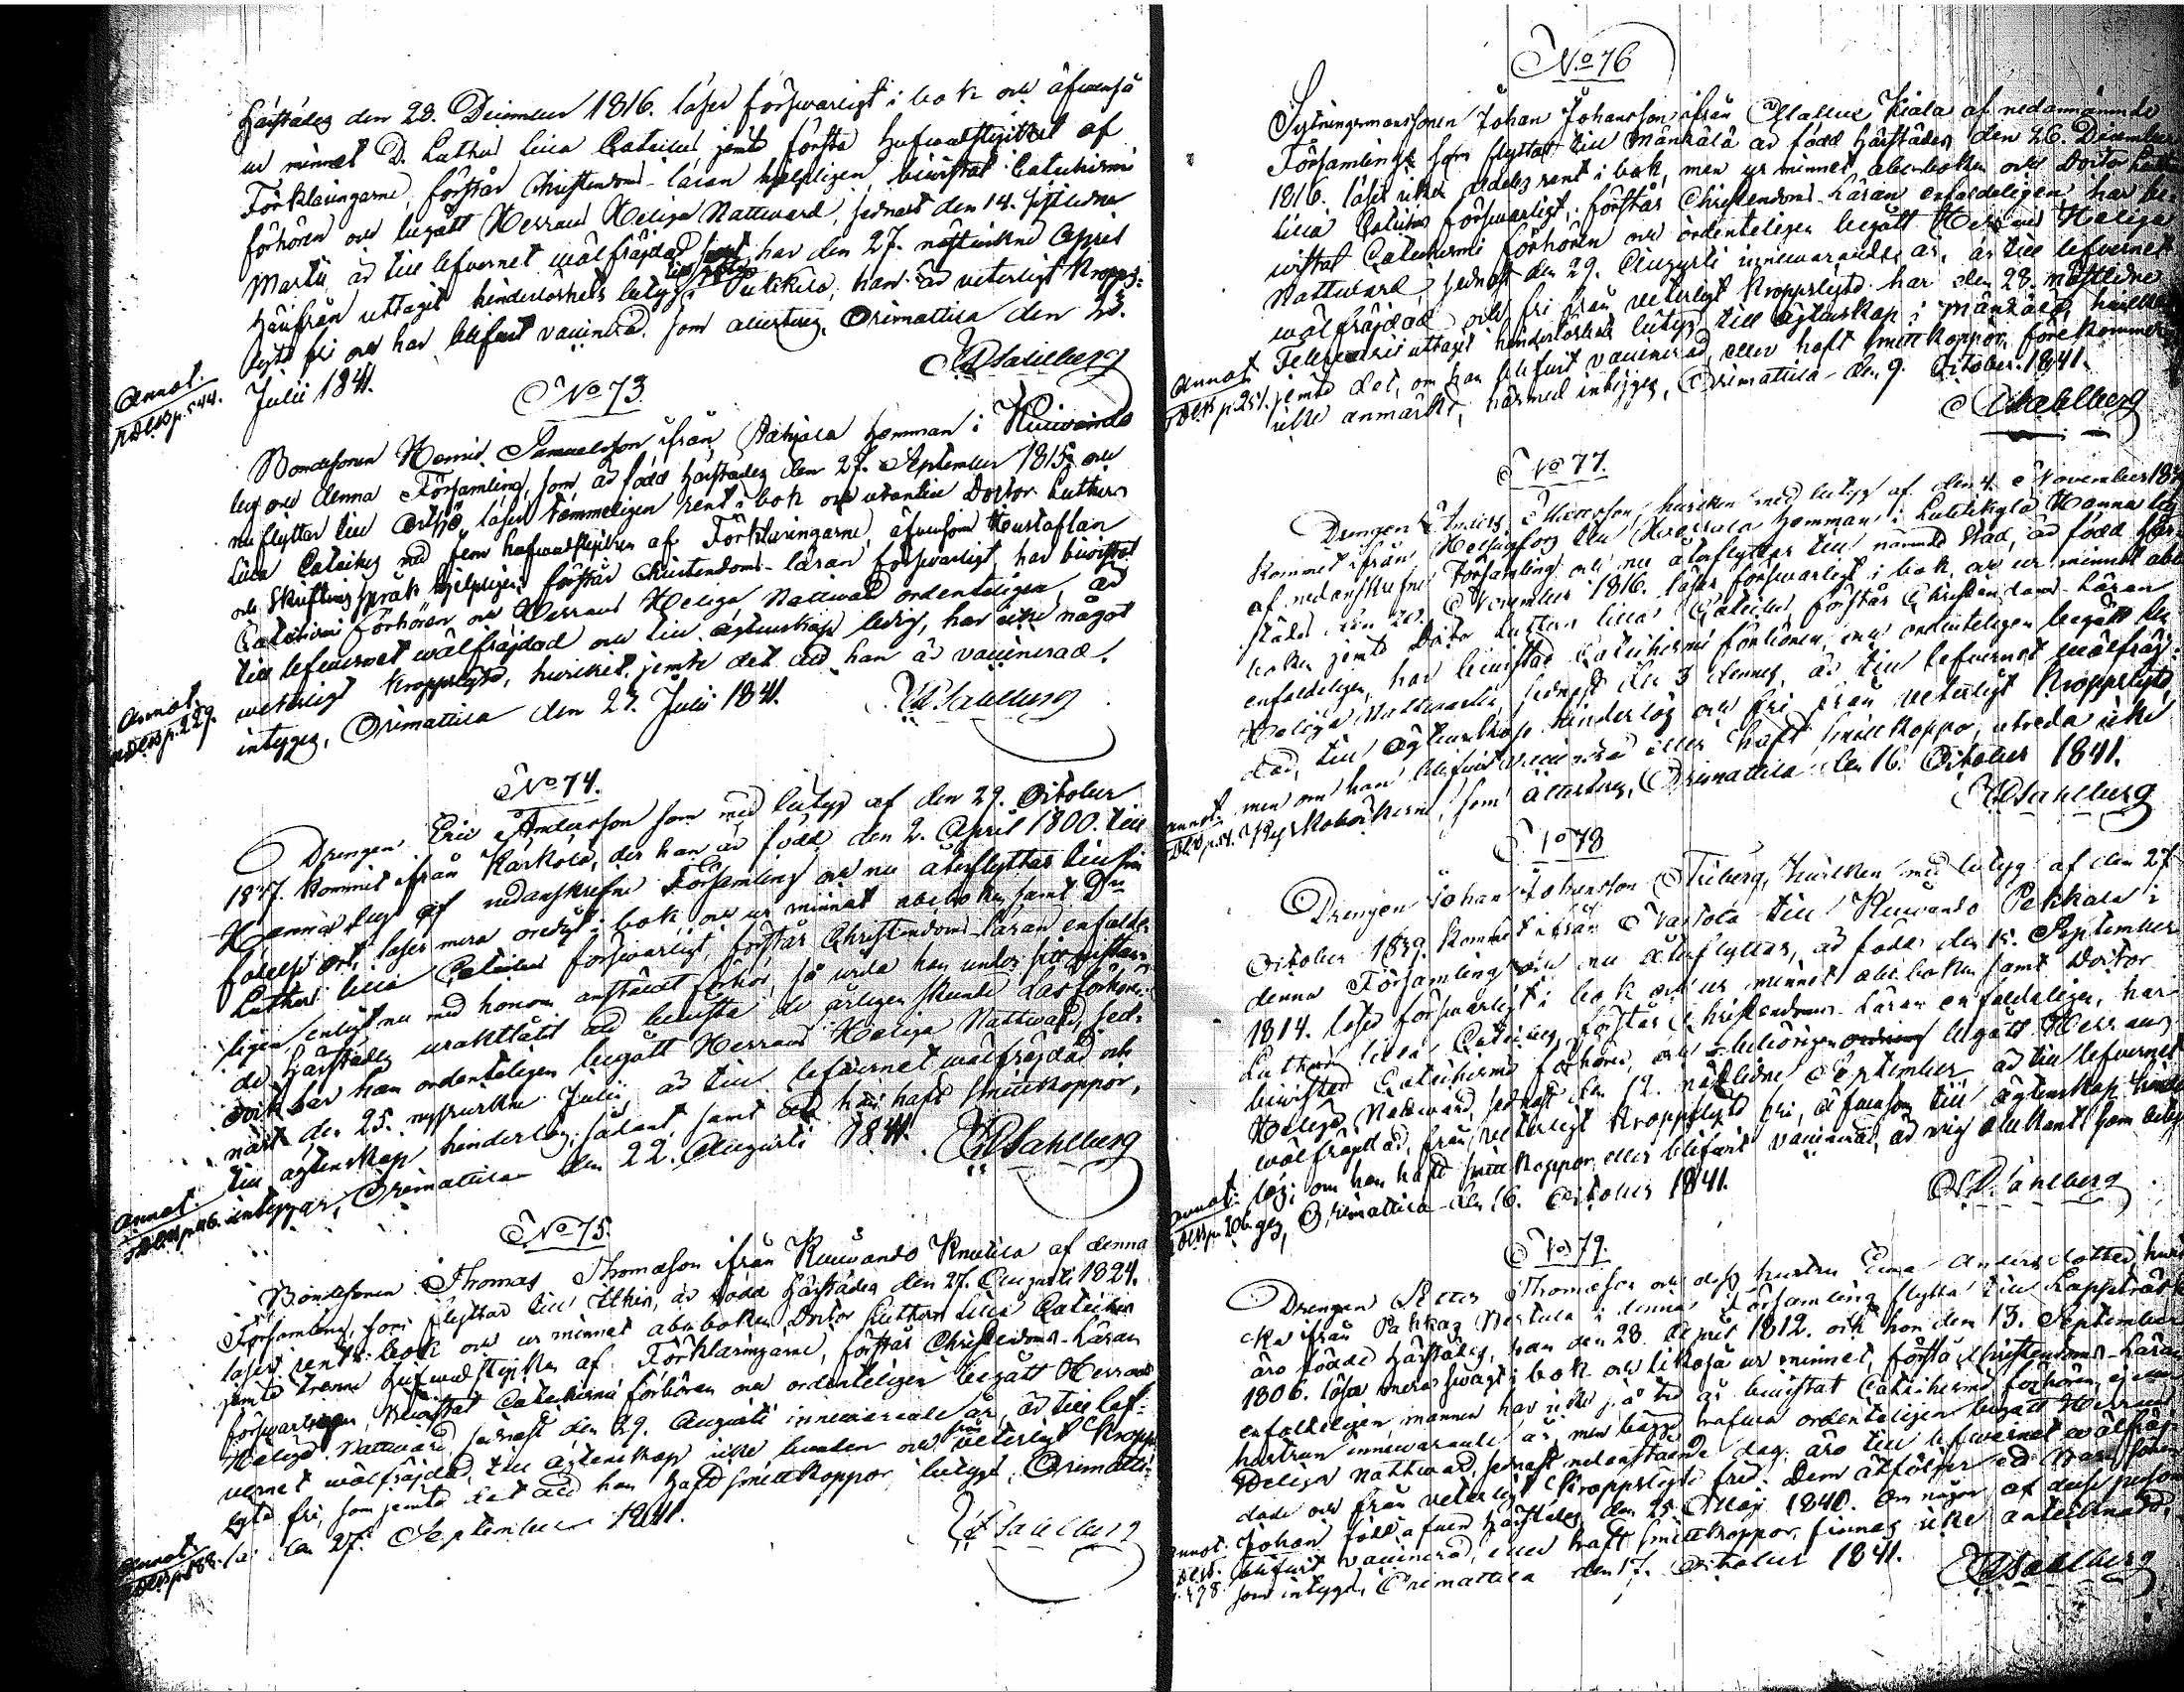 härstädes den 28. December 1816. läser försvarligt i bok och äfvenså
ur minnet D. Luthers lilla Cateches jemte första hufvudstycket af
Förklaringarne, förstår Christendoms-läran hjelpligen, bivistat Catechismi
förhören och begått Herrans Heliga Nattvard, sednast den 14. sistledne
Martii, är till lefvernet välfrejdad samt har den 27. nästvikne April
härifrån uttagit hinderlöshets betyg till Lutikila, han är veterligt kropps-
lyte fri och har blifvit vaccinerad. som attesteras, Orimattila den 23.
Julii 1841.
CRSahlberg
Annot.
p. 544.
No 73.
Bondesonen Henric Samuelsson ifrån hemman i Kuivando
by och denna Församling, som är född härstädes den 27. September 1815 och
nu flyttar till Artsjö, läser temmeligen rent i bok och utantill Doctor Luthers
Lilla Cateches med fem hufvudstycken af Förklaringarne, äfvensom Hustaflan
och Skriftings språk hjelpligen, förstår Christendoms-läran försvarligt, har bivistat
Catechismi förhören och Herrans Heliga Nattvard ordenteligen, är
till lefvernet välfrejdad och till ägtenskap ledig, har icke något
veterligt kroppslyte, hvilket jemte det att han är vaccinerad,
intygas, Orimattila den 27. Julii 1841.
CRSahlberg
Annot.
p. 229.
No 74.
Drengen Eric Andersson som med betyg af den 29. October
1837. kommit ifrån Kärkölä, der han är född den 2. April 1800. till
by af nedanskrefne Församling och nu återflyttar till sin
födelse ort, läser mera oredigt i bok och ur minnet abcboken samt Drs
Luthers lilla Cateches försvarligt, förstår Christendoms läran enfalde-
ligen, enligt nu med honom anstäldt förhör, så vida han under sin vistan-
de härstädes uraktlåtit att bevista de årligen skeende Läsförhören
dock har han ordenteligen begått Herrans Heliga Nattvard, sed-
nast den 25. nyssvikne Julii, är till lefvernet välfrejdad och
till ägtenskap hinderlös; sådant, samt att han haft smittkoppor,
intygar, Orimattila den 22. Augusti 1841.
CRSahlberg
Annot.
No 75.
Bondesonen Thomas Thomasson ifrån Kuivando Knutila af denna
Församling, som flyttar till Itthis, är född härstädes den 27. Augusti 1824.
läser rent i bok och ur minnet abcboken, Doctor Luthers lilla Cateches
jemte trenne hufvudstycken af Förklaringarne, förstår Christendoms-Läran
försvarligen, bevistat Catechismi förhören och ordenteligen begått Herrans
Heliga Nattvard, sednast den 29. Augusti innevarande år, är till lef-
vernet välfrejdad, till ägtenskap icke bunden och från veterligt kropps
lyte fri, som jemte det att han haft smittkoppor, betygas, Orimatti-
la den 27. September 1841.
CRSahlberg
Annot.
No 76
Sytningsmanssonen Johan Johansson ifrån Mallus Kiala af nedannämnde
Församling, som flyttar till Mänkälä är född härstädes den 26. December
1816. läser icke aldeles rent i bok, men ur minnet abc-boken och Doctor Luthers
Lilla Cateches försvarligt, förstår Christendoms-Läran enfaldeligen, har be-
vistat Catechismi förhören och ordenteligen begått Herrans Heliga
Nattvard, sednast den 29. Augusti innevarande år, är till lefvernet
välfrejdad och fri från veterligt kroppslyte, har den 28. nästledne
Februarii uttagit hinderlöshets betyg till ägtenskap i Mänkälä, hvilket
jemte det, om han blifvit vaccinerad eller haft smittkoppor, förekommer
icke anmärkt, härmed intygas, Orimattila den 9. October 1841.
CRSahlberg
Annot.
p. 251.
No 77.
Drengen Anders Andersson, hvilken med betyg af den 4. November 18
kommit ifrån Helsingfors till hemman i Luhtikylä
af nedanskrefne Församling och nu återflyttar till nämnde stad, är född här-
städes den 20. November 1816. läser försvarligt i bok och ur minnet abc
boken jemte Doctor Luthers lilla Cateches, förstår Christendoms-Läran
enfaldeligen, har bivistat Catechismi förhören, och ordenteligen begått
Heliga Nattvarden, sednast den 3 dennes, är till lefvernet välfrej-
dad, till ägtenskap hinderlös och fri från veterligt kroppslyte,
men om han blifvit vaccinerad eller haft smittkoppor, utreda icke
Kyrkoböckerne, som attesteras, Orimattila den 16. October 1841.
CRSahlberg
Annot.
No 78
Drengen Johan Johansson Friberg, hvilken med betyg af den 27.
October 1839. kommit ifrån Nastola till Kuivando Pekkala i
denna Församling och nu återflyttar, är född den 15. September
1814. läser försvarligt i bok och ur minnet abcboken samt Doctor
Luthers lilla Cateches, förstår Christendoms-Läran enfaldeligen, har
bivistat Catechismi förhören, och behörigen begått Herrans
Heliga Nattvard, sednast den 12. nästledne September är till lefvernet
välfrejdad, från veterligt kroppslyte fri, äfvensom till ägtenskap hinder
lös; om han haft smittkoppor eller blifvit vaccinerad, är mig obekant som bety-
gas, Orimattila den 16. October 1841.
CRSahlberg
Annot.
p. 206.
No 79.
Drengen Petter Thomasson och dess hustru Anders dotter, hvil-
cka ifrån Pakkas i denna Församling flytta till Lappträsk
äro födde härstädes, han den 28. April 1812. och hon den 13. September
1806. läsa mera svagt i bok och likaså ur minnet, förstå Christendoms-Läran
enfaldeligen, mannen har icke på tre år bivistat Catechismi förhören, ej
hustrun innevarande år, men bägge ordenteligen begått Herrans
Heliga Nattvard, sednast nedanstående dag, äro till lefvernet välfrej-
dade och från veterligt kroppslyte frie. Dem åtföljer ett barn, sonen
Johan född äfven härstädes den 25 Maj 1840. Om någon af desse personer
blifvit vaccinerad, eller haft smittkoppor, finnes icke antecknadt,
som intygas, Orimattila den 17. October 1841.
CRSahlberg
Annot.